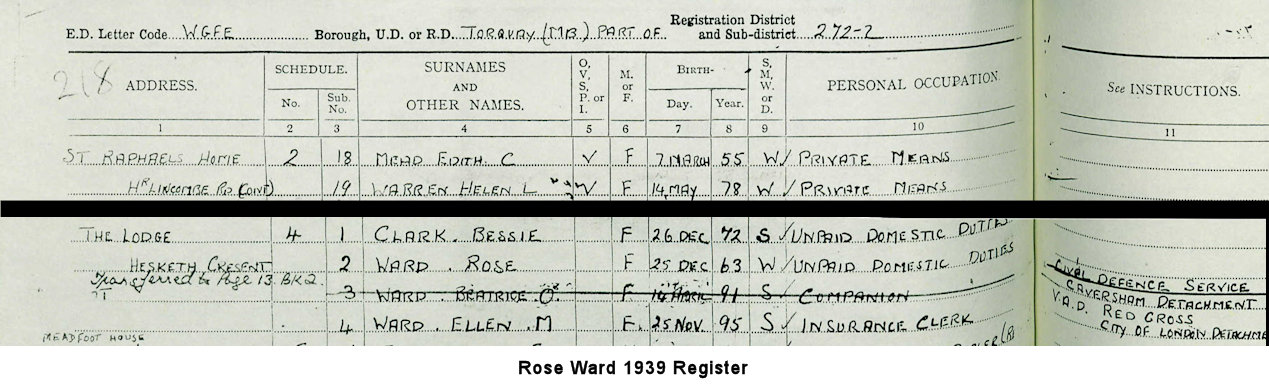 Registration District
E.D. Letter Code WGFE Borough, U.D. or R.D. TORQUAY (MB) PART OF and Sub-district 272-2
218 ADDRESS. SCHEDULE. No. Sub. No. SURNAMES AND OTHER NAMES. O, V, S, P. or I. M. or F. BIRTH- Day. Year. S, M, W. or D. PERSONAL OCCUPATION. See INSTRUCTIONS.
1 2 3 4 5 6 7 8 9 10 11
ST RAPHAELS HOME 2 18 MEAD EDITH C V F 7 MARCH 55 W PRIVATE MEANS
Hr LINCOMBE RD (CONT) 19 WARREN HELEN L V F 14 MAY 78 W PRIVATE MEANS
THE LODGE 4 1 CLARK. BESSIE F 26 DEC 72 S UNPAID DOMESTIC DUTIES
HESKETH CRESENT 2 WARD. ROSE F 25 DEC 63 W UNPAID DOMESTIC DUTIES
Transferred to Page 13 BK2 3 WARD. BEATRICE O. F 14 APRIL 91 S COMPANION CIVIL DEFENCE SERVICE
CAVERSHAM DETACHMENT
4 WARD. ELLEN. M F. 25 NOV. 95 S INSURANCE CLERK V.A.D. RED CROSS
CITY OF LONDON DETACHME
MEADFOOT HOUSE
Rose Ward 1939 Register